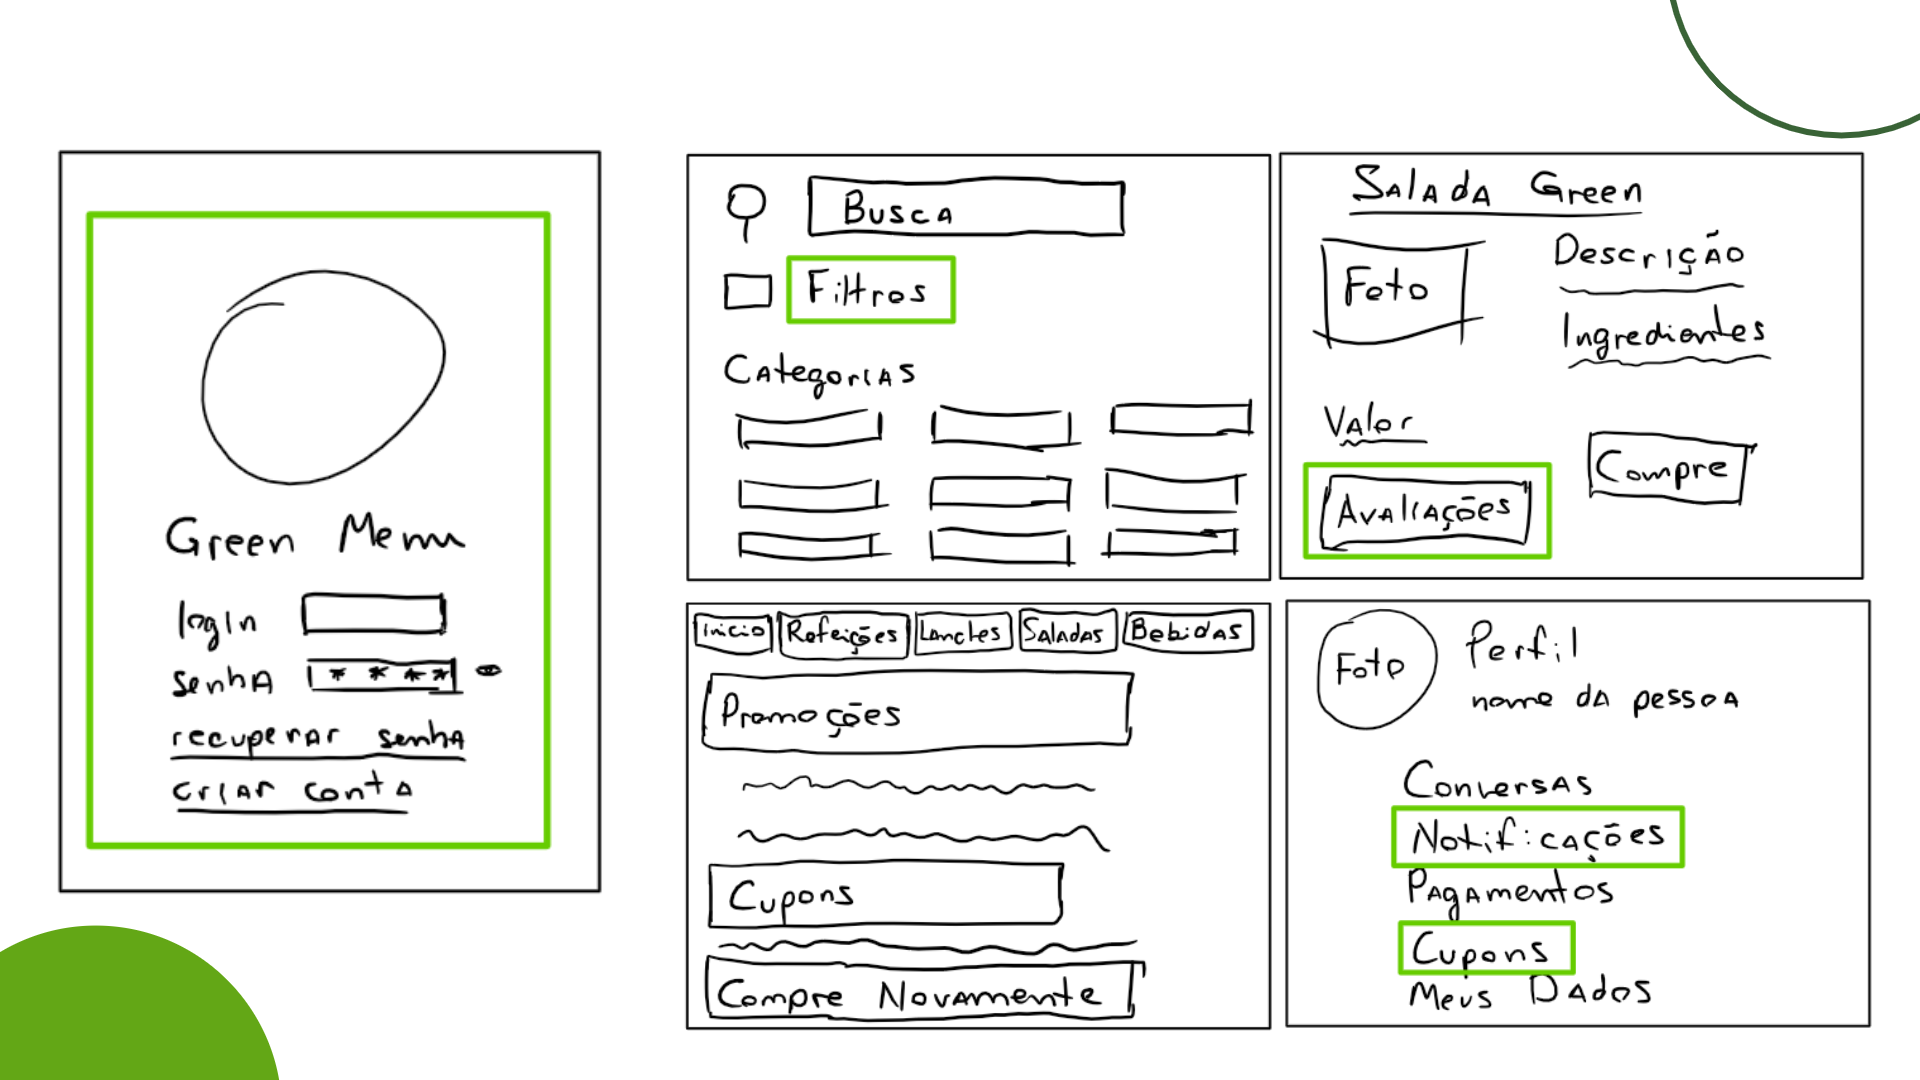 Green Menu
login
senha * * * *
recuperar senha
criar conta
Busca
Filtros
Categorias
Salada Green
Foto
Descrição
Ingredientes
Valor
Avaliações
Compre
Início Refeições Lanches Saladas Bebidas
Promoções
Cupons
Compre Novamente
Foto
Perfil
nome da pessoa
Conversas
Notificações
Pagamentos
Cupons
Meus Dados